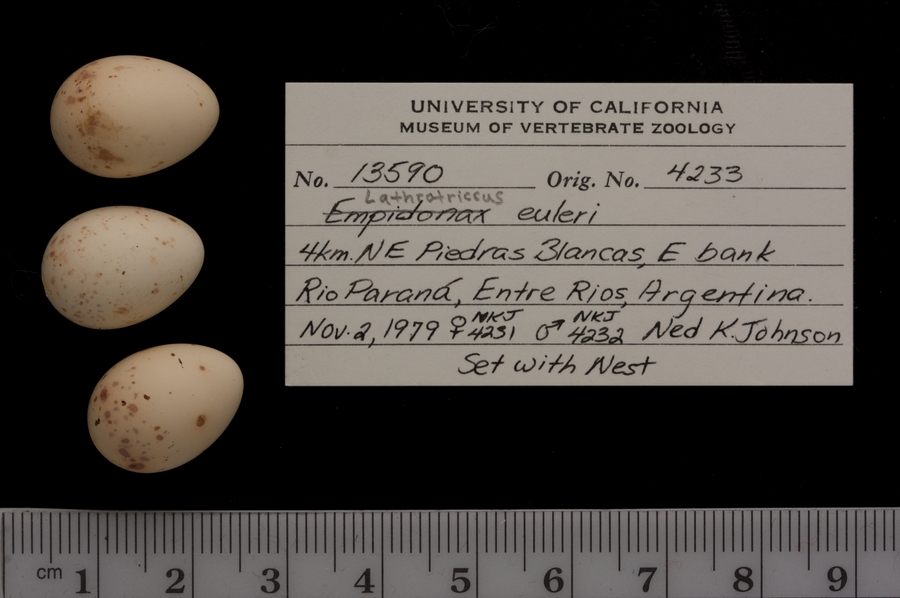 UNIVERSITY OF CALIFORNIA
MUSEUM OF VERTEBRATE ZOOLOGY
No. 13590 Orig. No. 4233
Lathrotriccus
Empidonax euleri
4km. NE Piedras Blancas, E bank
Rio Paraná, Entre Rios, Argentina.
Nov. 2, 1979 ♀ NKJ 4231 ♂ NKJ 4232 Ned K. Johnson
Set with Nest
cm 1 2 3 4 5 6 7 8 9